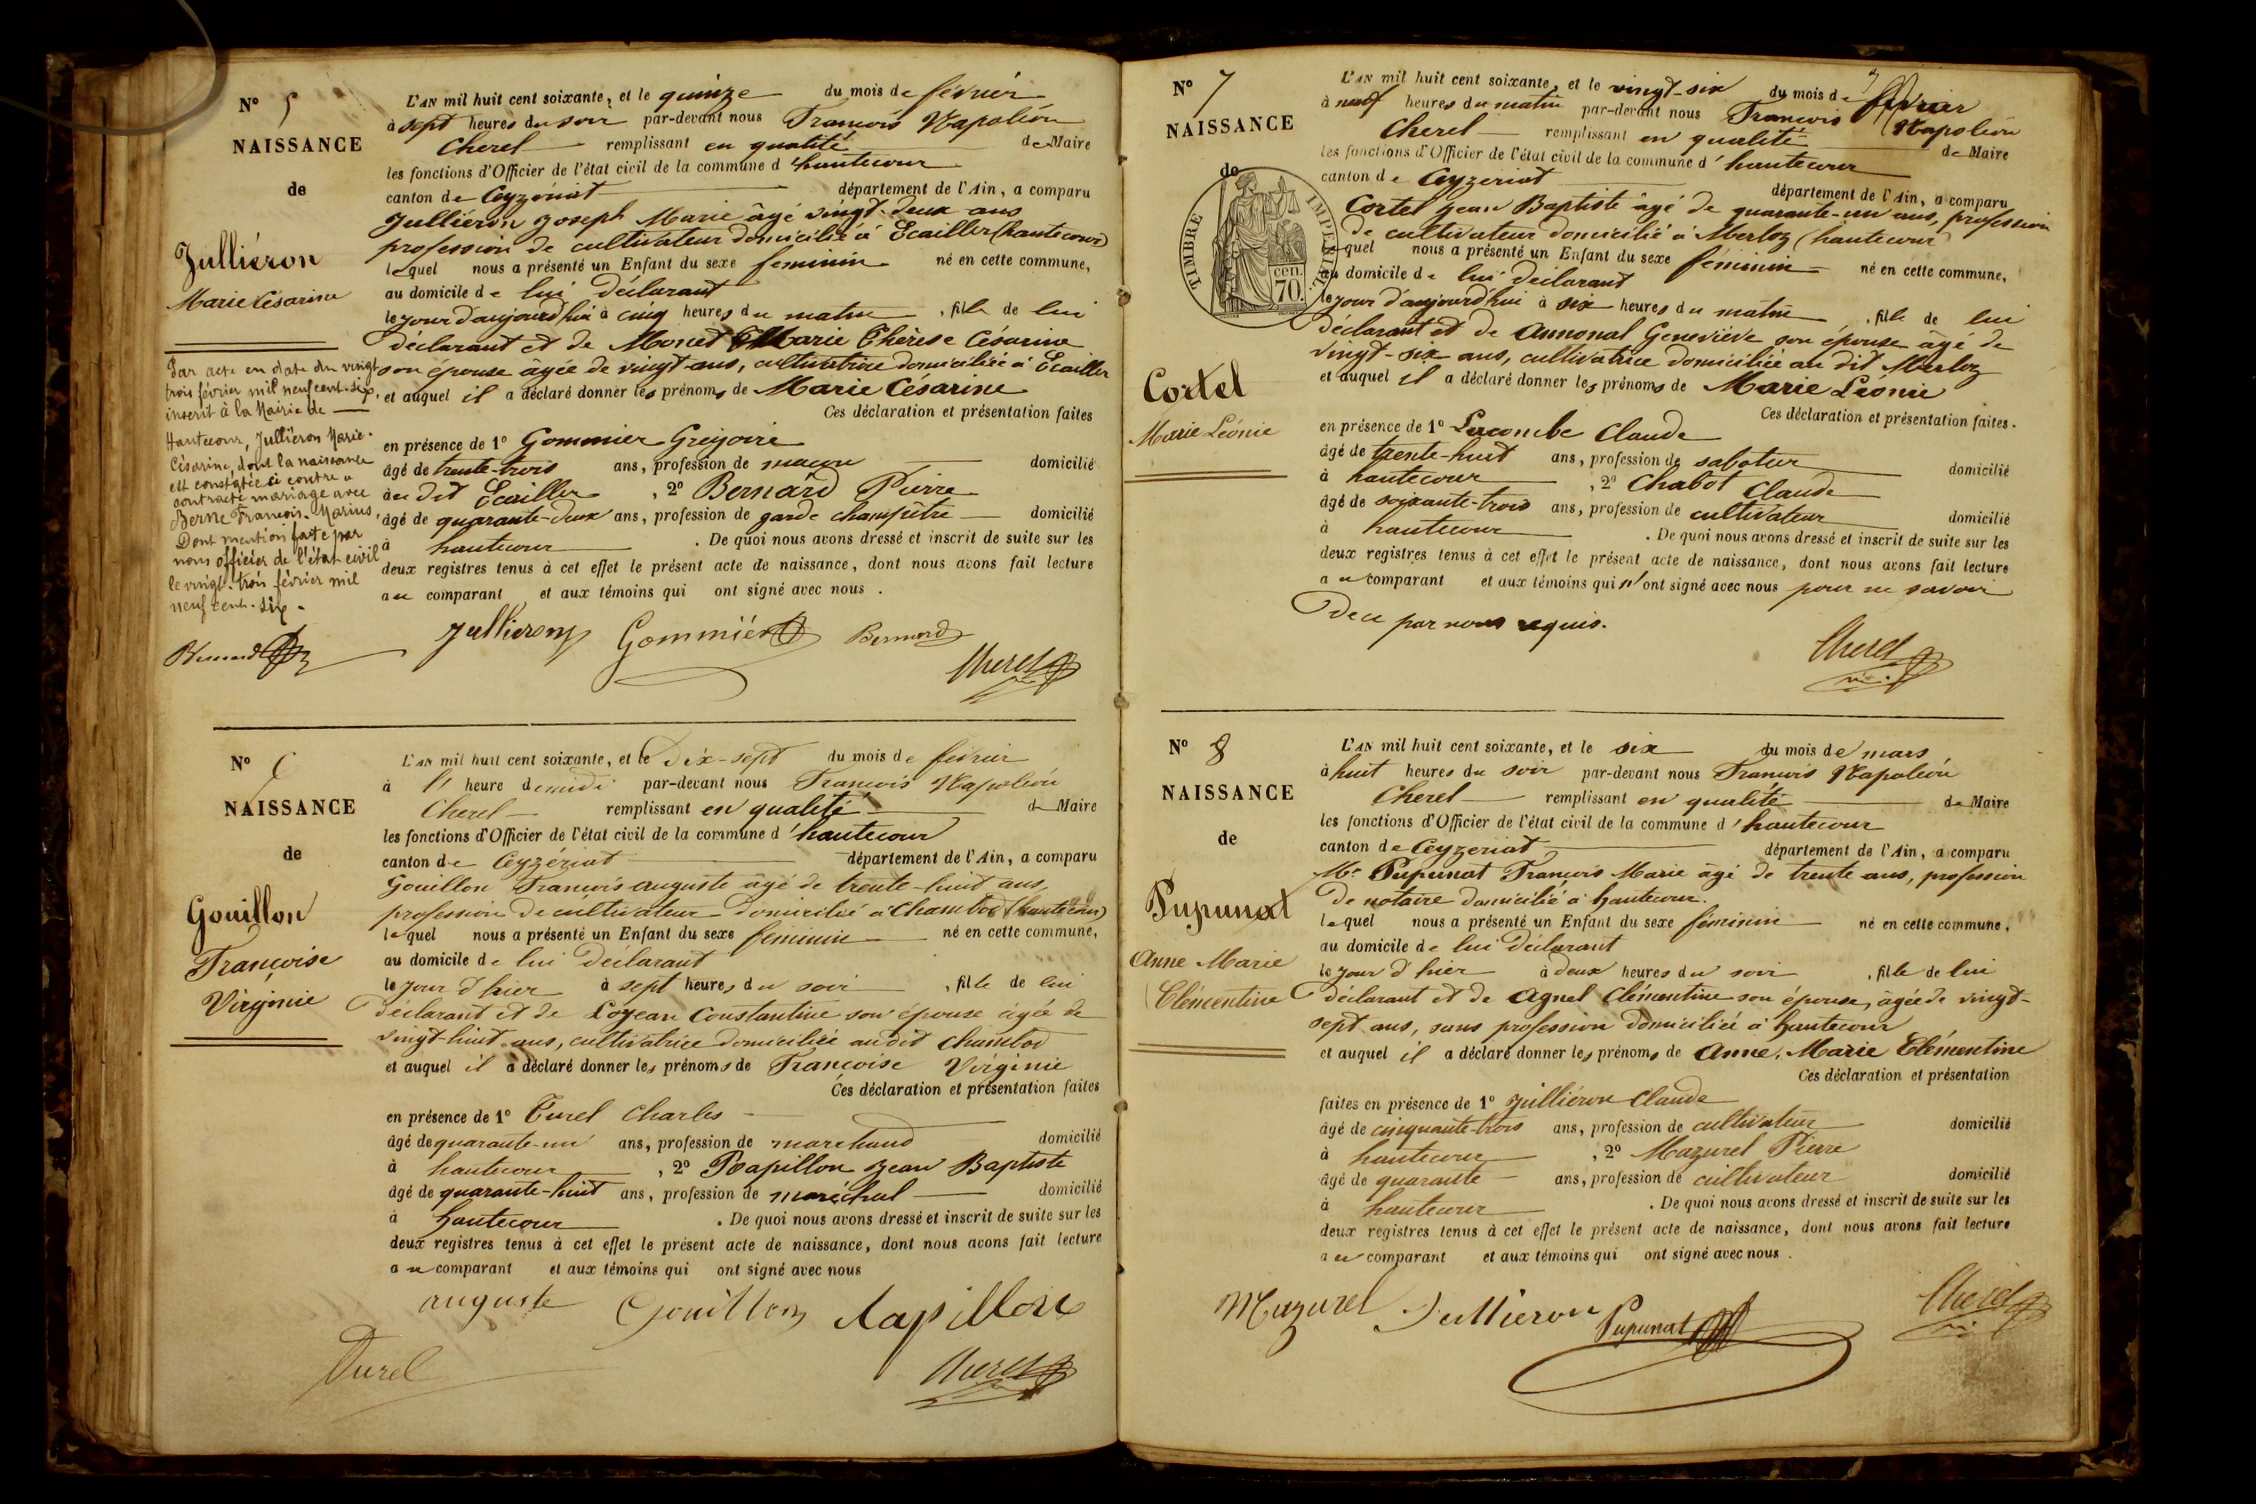 N° 5
NAISSANCE
de
Julliéron
Marie Césarine
Par acte en date du vingt
trois février mil neuf cent six,
inscrit à la Mairie de
Hautecour, Jullieron Marie
Césarine, dont la naissance
est constatée ci contre a
contracté mariage avec
Berne François Marius,
Dont mention faite par
nous officier de l'état civil
le vingt-trois février mil
neuf cent six.
L'AN mil huit cent soixante, et le quinze du mois de février
à sept heures du soir par-devant nous François Napoléon
Cherel remplissant en qualité de Maire
les fonctions d'Officier de l'état civil de la commune d'hautecour
canton de Ceyzériat département de l'Ain, a comparu
Jullieron Joseph Marie âgé vingt-deux ans
profession de cultivateur domicilié à Ecailler (hautecour)
lequel nous a présenté un Enfant du sexe feminin né en cette commune,
au domicile de lui déclarant
le jour d'aujourd'hui à cinq heures du matin, fille de lui
déclarant et de Monet Marie Thérèse Césarine
son épouse âgée de vingt ans, cultivatrice domiciliée à Ecailler
et auquel il a déclaré donner les prénoms de Marie Césarine
Ces déclaration et présentation faites
en présence de 1° Gommier Grégoire
âgé de trente-trois ans, profession de maçon domicilié
au dit Ecailler, 2° Bernard Pierre
âgé de quarante-deux ans, profession de garde champêtre domicilié
à hautecour. De quoi nous avons dressé et inscrit de suite sur les
deux registres tenus à cet effet le présent acte de naissance, dont nous avons fait lecture
au comparant et aux témoins qui ont signé avec nous.
Jullieron Gommier Bernard
Cherel
N° 6
NAISSANCE
de
Gouillon
Françoise
Virginie
L'AN mil huit cent soixante, et le dix-sept du mois de février
à l' heure de midi par-devant nous François Napoléon
Cherel remplissant en qualité de Maire
les fonctions d'Officier de l'état civil de la commune d'hautecour
canton de Ceyzériat département de l'Ain, a comparu
Gouillon François auguste âgé de trente-huit ans
profession de cultivateur domicilié à Chambod (hautecour)
lequel nous a présenté un Enfant du sexe feminin né en cette commune,
au domicile de lui déclarant
le jour d'hier à sept heures du soir, fille de lui
déclarant et de Loyean Constantine son épouse âgée de
vingt-huit ans, cultivatrice domiciliée audit Chambod
et auquel il a déclaré donner les prénoms de Françoise Virginie
Ces déclaration et présentation faites
en présence de 1° Turel Charles
âgé de quarante-un ans, profession de marchand domicilié
à hautecour, 2° Papillon Jean Baptiste
âgé de quarante-huit ans, profession de maréchal domicilié
à hautecour. De quoi nous avons dressé et inscrit de suite sur les
deux registres tenus à cet effet le présent acte de naissance, dont nous avons fait lecture
au comparant et aux témoins qui ont signé avec nous
auguste Gouillon Papillon
Turel Cherel
N° 7
NAISSANCE
de
TIMBRE IMPERIAL
70 cen.
Cortel
Marie Léonie
L'AN mil huit cent soixante, et le vingt-six du mois de février
à neuf heures du matin par-devant nous François Napoléon
Cherel remplissant en qualité de Maire
les fonctions d'Officier de l'état civil de la commune d'hautecour
canton de Ceyzeriat département de l'Ain, a comparu
Cortel Jean Baptiste âgé de quarante-un ans, profession
de cultivateur domicilié à Merloz (hautecour)
lequel nous a présenté un Enfant du sexe feminin né en cette commune,
au domicile de lui déclarant
le jour d'aujourd'hui à six heures du matin, fille de lui
déclarant et de Annonal Geneviève son épouse âgé de
vingt-six ans, cultivatrice domiciliée au dit Merloz
et auquel il a déclaré donner les prénoms de Marie Léonie
Ces déclaration et présentation faites.
en présence de 1° Lacombe Claude
âgé de trente-huit ans, profession de sabotier domicilié
à hautecour, 2° Chabot Claude
âgé de soixante-trois ans, profession de cultivateur domicilié
à hautecour. De quoi nous avons dressé et inscrit de suite sur les
deux registres tenus à cet effet le présent acte de naissance, dont nous avons fait lecture
au comparant et aux témoins qui n'ont signé avec nous pour ne savoir
de ce par nous requis.
Cherel
N° 8
NAISSANCE
de
Pupunat
Anne Marie
Clémentine
L'AN mil huit cent soixante, et le six du mois de mars
à huit heures du soir par-devant nous François Napoléon
Cherel remplissant en qualité de Maire
les fonctions d'Officier de l'état civil de la commune d'hautecour
canton de Ceyzeriat département de l'Ain, a comparu
Me Pupunat François Marie âgé de trente ans, profession
de notaire domicilié à hautecour.
lequel nous a présenté un Enfant du sexe féminin né en cette commune,
au domicile de lui déclarant
le jour d'hier à deux heures du soir, fille de lui
déclarant et de Agnel Clémentine son épouse, âgée de vingt-
sept ans, sans profession domiciliée à hautecour
et auquel il a déclaré donner les prénoms de Anne Marie Clémentine
Ces déclaration et présentation
faites en présence de 1° Julliéron Claude
âgé de cinquante-trois ans, profession de cultivateur domicilié
à hautecour, 2° Mazurel Pierre
âgé de quarante ans, profession de cultivateur domicilié
à hautecour. De quoi nous avons dressé et inscrit de suite sur les
deux registres tenus à cet effet le présent acte de naissance, dont nous avons fait lecture
au comparant et aux témoins qui ont signé avec nous.
Mazurel Jullieron Pupunat Cherel